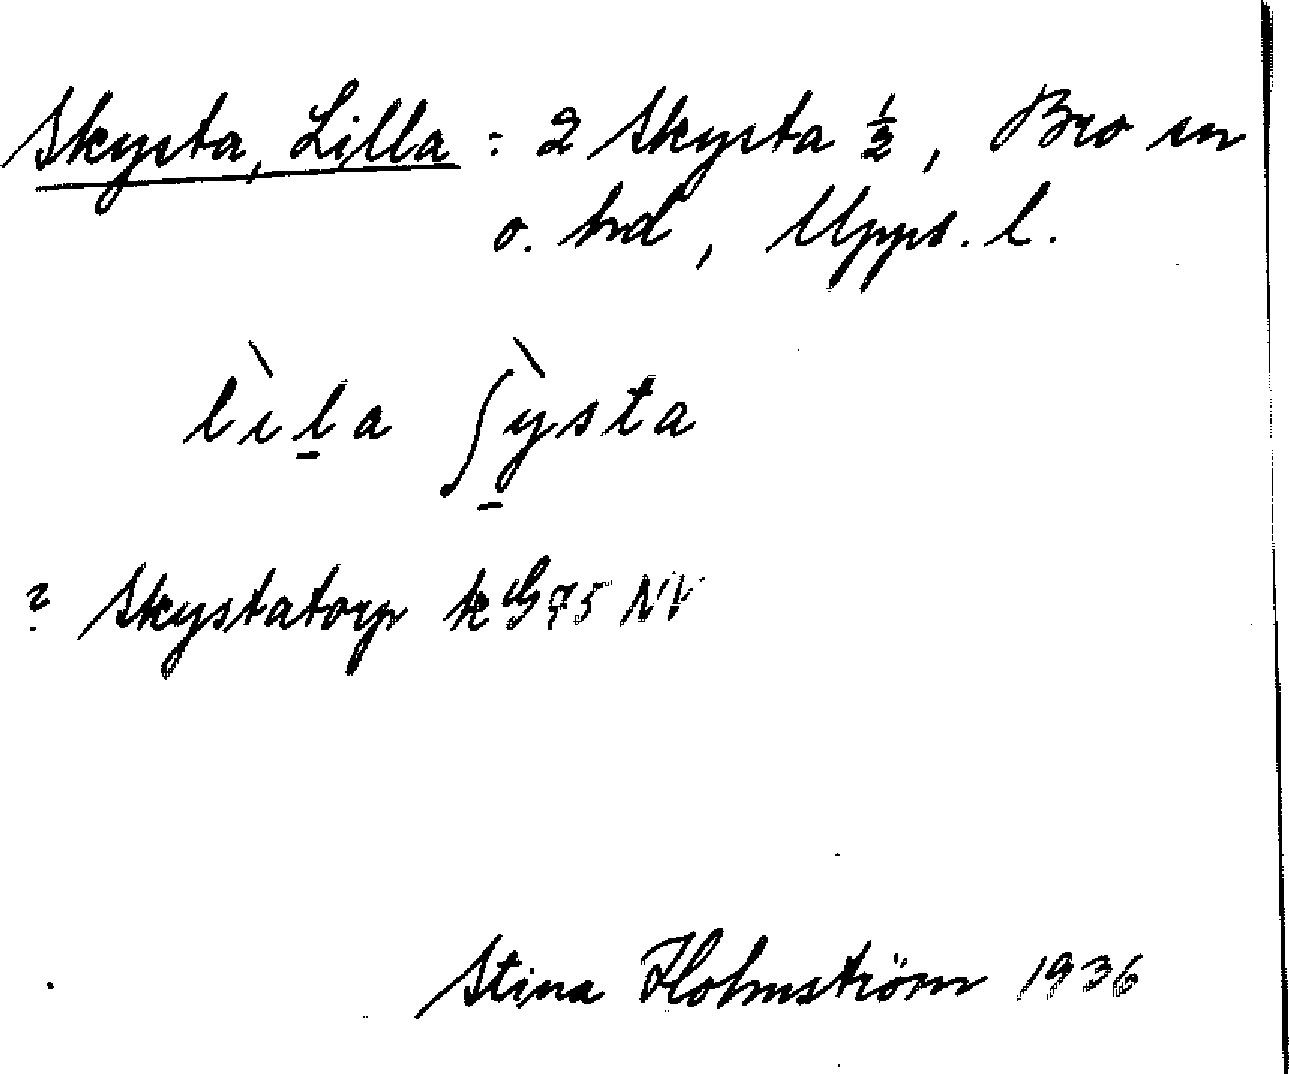 Skysta, Lilla : 2 Skysta ½, Bro sn
o. hd, Upps. l.
lìḻa ʃỳ̱sta
? Skystatorp k G 75 NV
Stina Holmström 1936